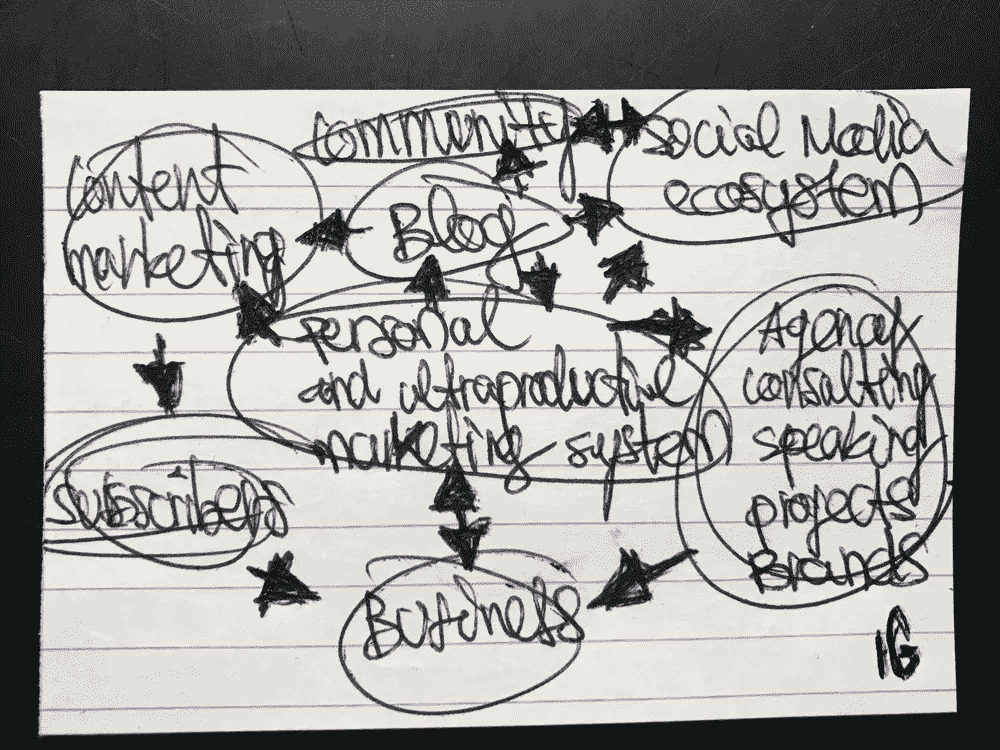 community
social Media
ecosystem
content
marketing
Blog
personal
and ultraproductive
marketing system
Agency
consulting
speaking
projects
Brands
subscribers
Business
IG